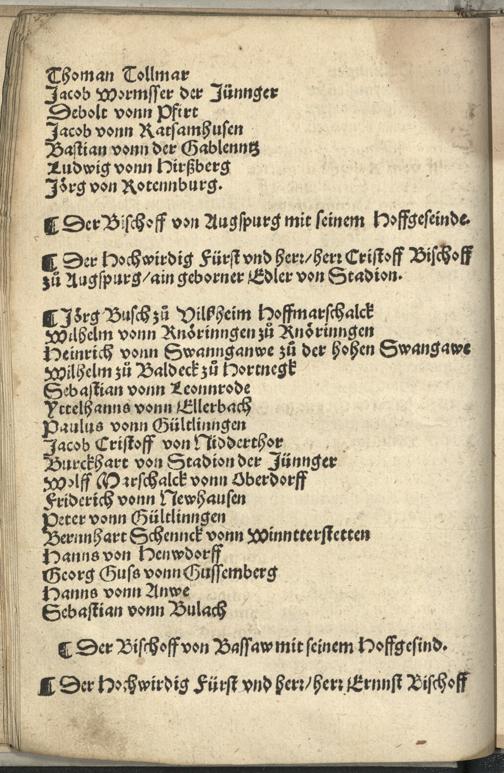 Thoman Tollmar
Jacob Wormsser der Jünnger
Sebolt vonn Pfirt
Jacob vonn Ratsamhusen
Bastian vonn der Gablenntz
Ludwig vonn Hirßberg
Jörg von Rotennburg.
¶ Der Bischoff von Augspurg mit seinem Hoffgeseinde.
¶ Der Hochwirdig Fürst vnd herr/herr Cristoff Bischoff
zů Augspurg/ain geborner Edler von Stadion.
¶ Jörg Busch zů Vilßheim Hoffmarschalck
Wilhelm vonn Knörinngen zů Knörinngen
Heinrich vonn Swannganwe zů der hohen Swangawe
Wilhelm zů Baldeck zů Hortnegk
Sebastian vonn Leonnrode
Yttelhanns vonn Ellerbach
Paulus vonn Gültlinngen
Jacob Cristoff von Nidderthor
Burckhart von Stadion der Jünnger
Wolff Marschalck vonn Oberdorff
Friderich vonn Newhausen
Peter vonn Gültlinngen
Bernnhart Schennck vonn Winntterstetten
Hanns von Henwdorff
Georg Guss vonn Gussemberg
Hanns vonn Anwe
Sebastian vonn Bulach
¶ Der Bischoff von Bassaw mit seinem Hoffgesind.
¶ Der Hochwirdig Fürst vnd herr/herr Ernnst Bischoff